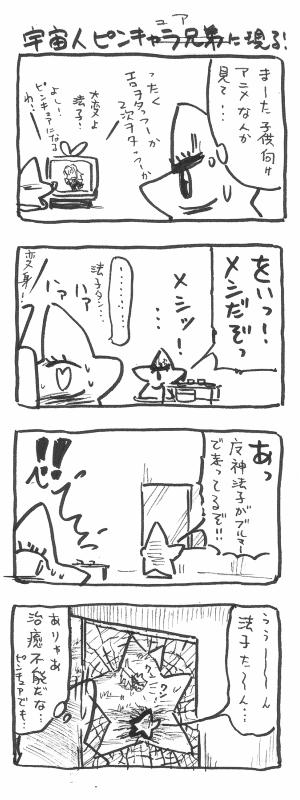 宇宙人ピンキャラ兄弟に現る!
ュア
まーた子供向け
アニメなんか
見て…
ったく
エロヲタっつーか
2次ヲタっつーか
大変よ
法子!
よし!
ピンキュアになる
わ!
をいっー!
メシだぞっ
メシッー!
…
…………
法子タン…
ハァ
ハァ
変身!
あっ
度神法子がブルマー
で走ってるぞ!!
!!
うぅ〜〜ん
法子た〜ん…
ワン
ワン
ありゃあ
治癒不能だな…
ピンキュアでも…